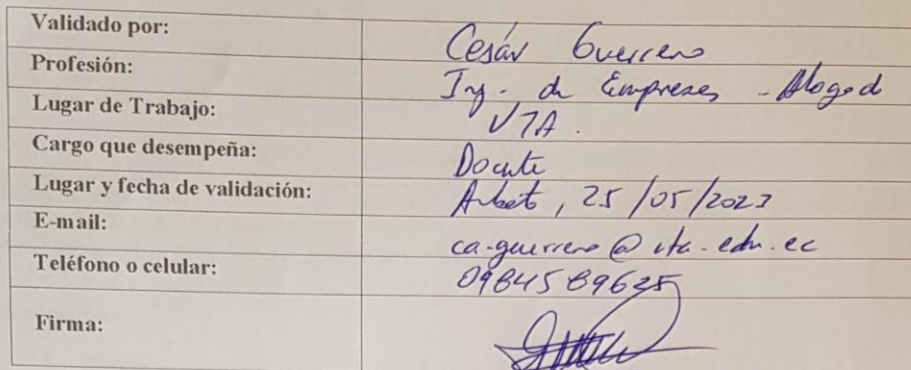 Validado por: Cesár Guerrero
Profesión: Ing. de Empresas - Abogado
Lugar de Trabajo: UTA.
Cargo que desempeña: Docente
Lugar y fecha de validación: Ambato, 25/05/2023
E-mail: ca.guerrero@uta.edu.ec
Teléfono o celular: 0984589625
Firma: